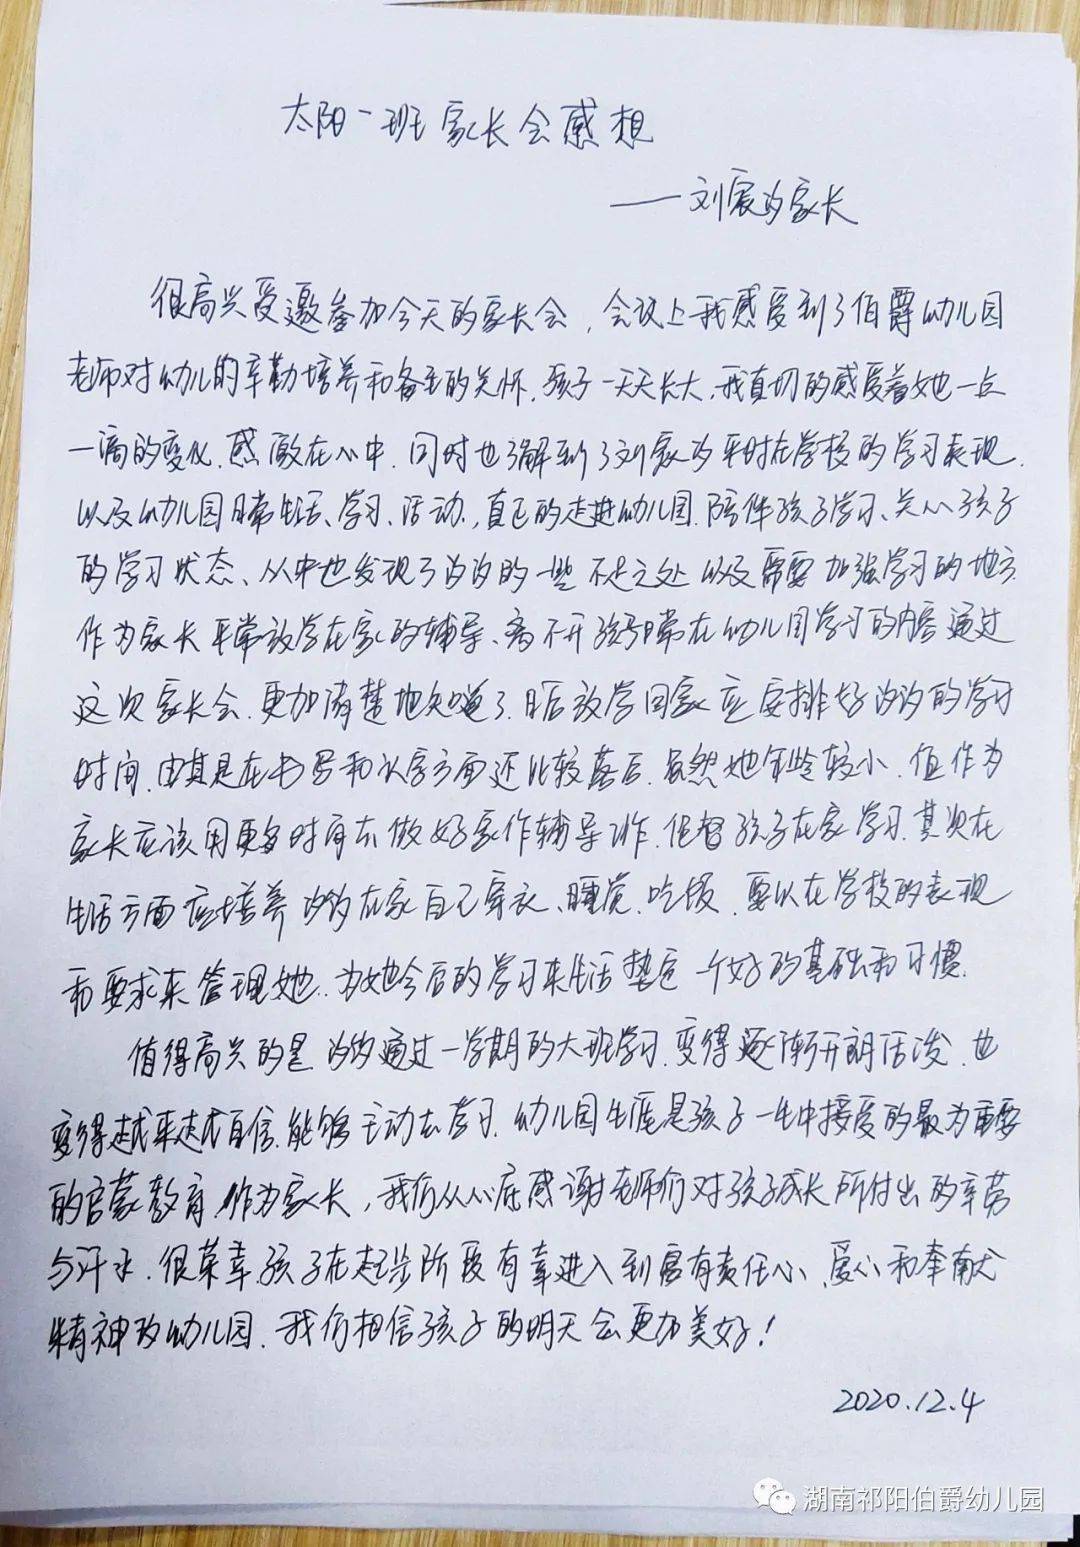 太阳一班家长会感想
——刘宸汐家长
很高兴受邀参加今天的家长会，会议上我感受到了伯爵幼儿园
老师对幼儿的辛勤培养和备至的关怀.孩子一天天长大,我真切的感受着她一点
一滴的变化.感激在心中.同时也了解到了刘宸汐平时在学校的学习表现.
以及幼儿园日常生活、学习、活动.,自己的走进幼儿园.陪伴孩子学习、关心孩子
的学习状态、从中也发现了汐汐的一些不足之处以及需要加强学习的地方.
作为家长平常放学在家的辅导、离不开孩子日常在幼儿园学习的内容通过
这次家长会.更加清楚地知道了.日后放学回家应安排好汐汐的学习
时间.由其是在书写和认字方面还比较落后.虽然她年龄较小.但作为
家长应该用更多时间去做好家作辅导工作.促督孩子在家学习.其次在
生活方面应培养汐汐在家自己穿衣、睡觉、吃饭.要以在学校的表现
和要求来管理她.为她今后的学习来生活垫定一个好的基础和习惯.
值得高兴的是汐汐通过一学期的大班学习.变得逐渐开朗活泼.也
变得越来越自信.能够主动去学习.幼儿园生涯是孩子一生中接受的最为重要
的启蒙教育.作为家长，我们从心底感谢老师们对孩子成长所付出的辛劳
与汗水.很荣幸孩子在起步阶段有幸进入到富有责任心、爱心和奉献
精神的幼儿园.我们相信孩子的明天会更加美好！
2020.12.4
湖南祁阳伯爵幼儿园